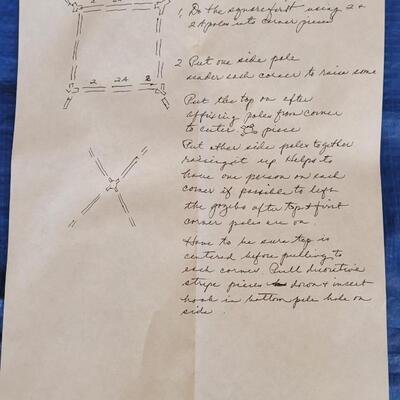 2 2A 2
1, Do the square first using 2 &
2A poles into corner pieces
2 2A 2
2 Put one side pole
under each corner to raise some
Put the top on after
affixing poles from corner
to center piece
Put other side poles together
raising it up Helps to
have one person on each
corner if possible to lift
the gazebo after top & first
corner poles are on.
Have to be sure top is
centered before pulling to
each corner. Pull decorative
stripe pieces down & insert
hook in bottom pole hole on
side.